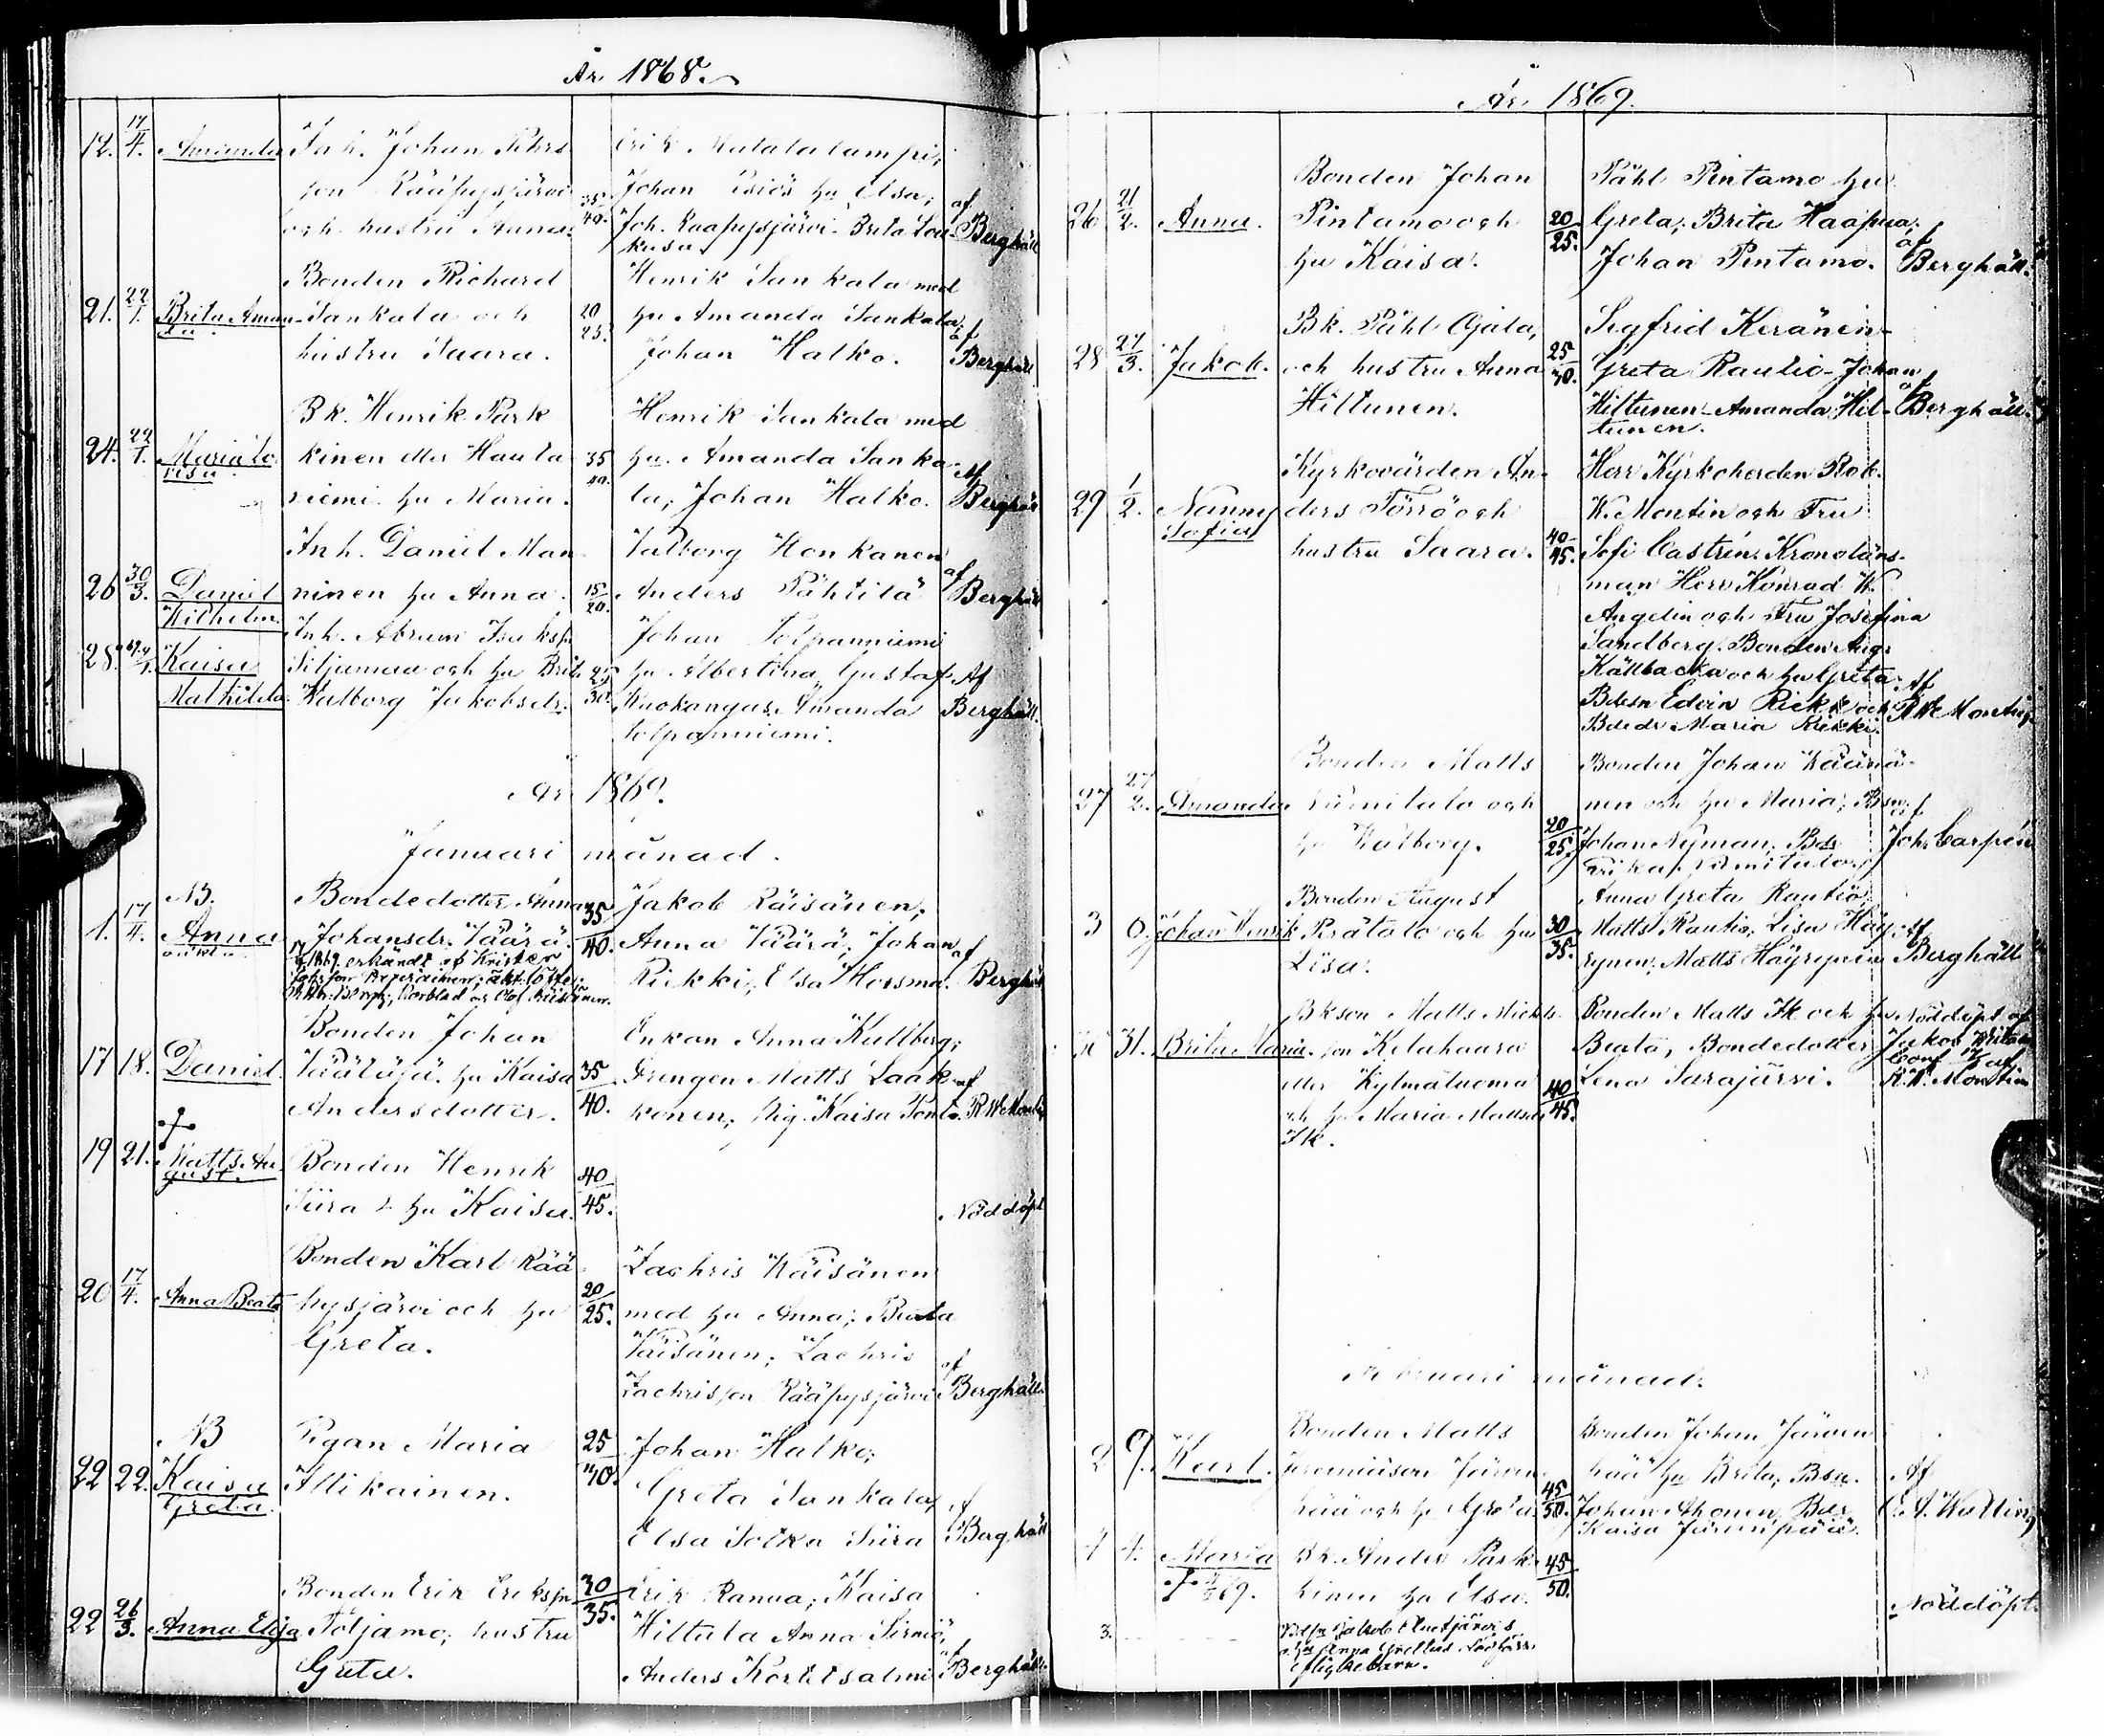 År 1868.
12. 17/4. Amanda Inh. Johan Pehrs- Erik Matalalampi;
son Rääpysjärvi 35/40. Johan hu Elsa; af
och hustru Anna. Joh. Rääpysjärvi Brita Lou- Berghäll
kusa
Bonden Richard Henrik Sankala med
21. 22/1. Brita Aman- Sankala och 20/25. hu Amanda Sankala, af
da. hustru Saara. Johan Halko. Berghäll
Bk. Henrik Park Henrik Sankala med
24. 22/1. Maria Lo- kinen eller Hauta 35/40. hu Amanda Sanka- Af
visa niemi hu Maria. la, Johan Halko. Berghäll
Inh. Daniel Man- Valborg Honkanen af
26 30/3. Daniel ninen hu Anna. 15/20. Anders Pähtilä Berghäll
Wilhelm
Inh. Abram Isaksson Johan Tolpanniemi
28. Kaisa Siljamaa och hu Brita 25/30. hu Albertina, Gustaf Af
Mathilda. Walborg Jakobsdr. Kuokangas, Amanda Berghäll.
Tolpanniemi.
År 1869.
Januari månad.
NB. Bondedotter Anna 35/40. Jakob Räisänen,
1. 17/4. Anna Johansdr. Väärä. Anna Väärä, Johan af
oäkta. 1869. erkändt af Krister Rikki, Elsa Horsma. Berghäll
Bonden Johan Enkan Anna Kullberg;
17 18. Daniel. Väätäjä. hu Kaisa 35/40. Drengen Matts Laak- af
Andersdotter. konen, Pig. Kaisa R W Montin
19 21. Matts Au- Bonden Henrik 40/45.
gust. Siira & hu Kaisa. Nöddöpt
Bonden Karl Rää- Zachris Väisänen
20 17/4. Anna Beata pysjärvi och hu 20/25. med hu Anna; Beata
Greta. Väisänen; Zachris af
Zachrisson Rääpysjärvi Berghäll.
NB Pigan Maria 25/30. Johan Halko;
22 22. Kaisa Attikainen. Greta Sankala, af
Greta. Elsa Sofia Siira Berghäll
Bonden Erik Eriksson 30/35. Erik Ranua; Kaisa
22 26/3. Anna Elisa Töljamo; hustru Hiltula Anna Sirniö, af
Greta. Anders Kortetsalmi Berghäll.
År 1869.
Bonden Johan Påhl Pintamo hu
26 21/2. Anna. Pintamo och 20/25. Greta; Brita Haapua; af
hu Kaisa. Johan Pintamo. Berghäll.
Bk. Påhl Ojala, Sigfrid Keränen-
28 27/3. Jakob. och hustru Anna 25/30. Greta Rautio-Johan af
Hiltunen. Hiltunen-Amanda Hil- Berghäll.
tunen.
Kyrkovärden An- Herr Kyrkoherden Rob.
29 1/2. Nanny ders Törrö och W. Montin och Fru
Sofia hustru Saara. 40/45. Sofi Castrén. Kronoläns-
man Herr Konrad W.
Angelin och Fru Josefina
Sandberg. Bonden Aug.
Källbacka och hu Greta. Af
Bdesn Edvin Rikki och R W Montin
Bdedr Maria Rikki.
Bonden Matts Bonden Johan
27 27/2. Amanda Nimitalo och nen och hu Maria; Bsn. af
hu Walborg. 20/25. Johan Nyman; Bdr Joh. Carpén
Bonden August Anna Greta Rautio,
3 Johan Henrik Perätalo och hu 30/35. Matts Rautio; Lisa Häy- Af
Lisa. rynen; Matts Häyrynen Berghäll
Bkson Matts Michels- Bonden Matts Ik och hu Nöddöpt af
31. Brita Maria. son Kelahaara Beata, Bondedotter Jakob
eller Kylmäluoma 40/45. Lena Sarajärvi. R.W. Montin
och hu Maria Mattsdr
Ik.
Februari månad.
Bonden Matts Bonden Johan Järven
2 9. Karl. Jeremiason Järven- pää hu Brita; Bsn. Af
pää och hu Greta. 45/50. Johan Ahonen, Bdr
Kaisa Järvenpää.
4 4. Maria Bk. Anders Park- 45/50.
69. kinen hu Elsa Nöddöpt.
3. Jakob
hu Anna Grettas